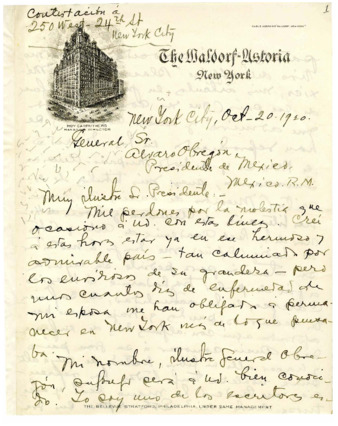 Contestación á
250 West - 24th St
New York City
1
The Waldorf-Astoria
New York
ROY CARRUTHERS
MANAGING DIRECTOR
New York City, Oct-20-1920.
General Sr.
Alvaro Obregón,
Presidente de Mexico.
Mexico. R.M.
Muy ilustre Sr Presidente. -
Mil perdones por la molestia que
ocasiono á ud. con estas lineas. Creí
á estas horas estar ya en ese hermoso y
admirable país - tan calumniado por
los envidiosos de su grandeza - pero
unos cuantos dias de enfermedad de
mi esposa me han obligado á perma-
necer en New York mas de lo que pensa-
ba.
Mi nombre, ilustre General Obre-
gón, será á ud. bien conoci-
do. Yo soy uno de los escritores es-
THE BELLEVUE STRATFORD, PHILADELPHIA, UNDER SAME MANAGEMENT